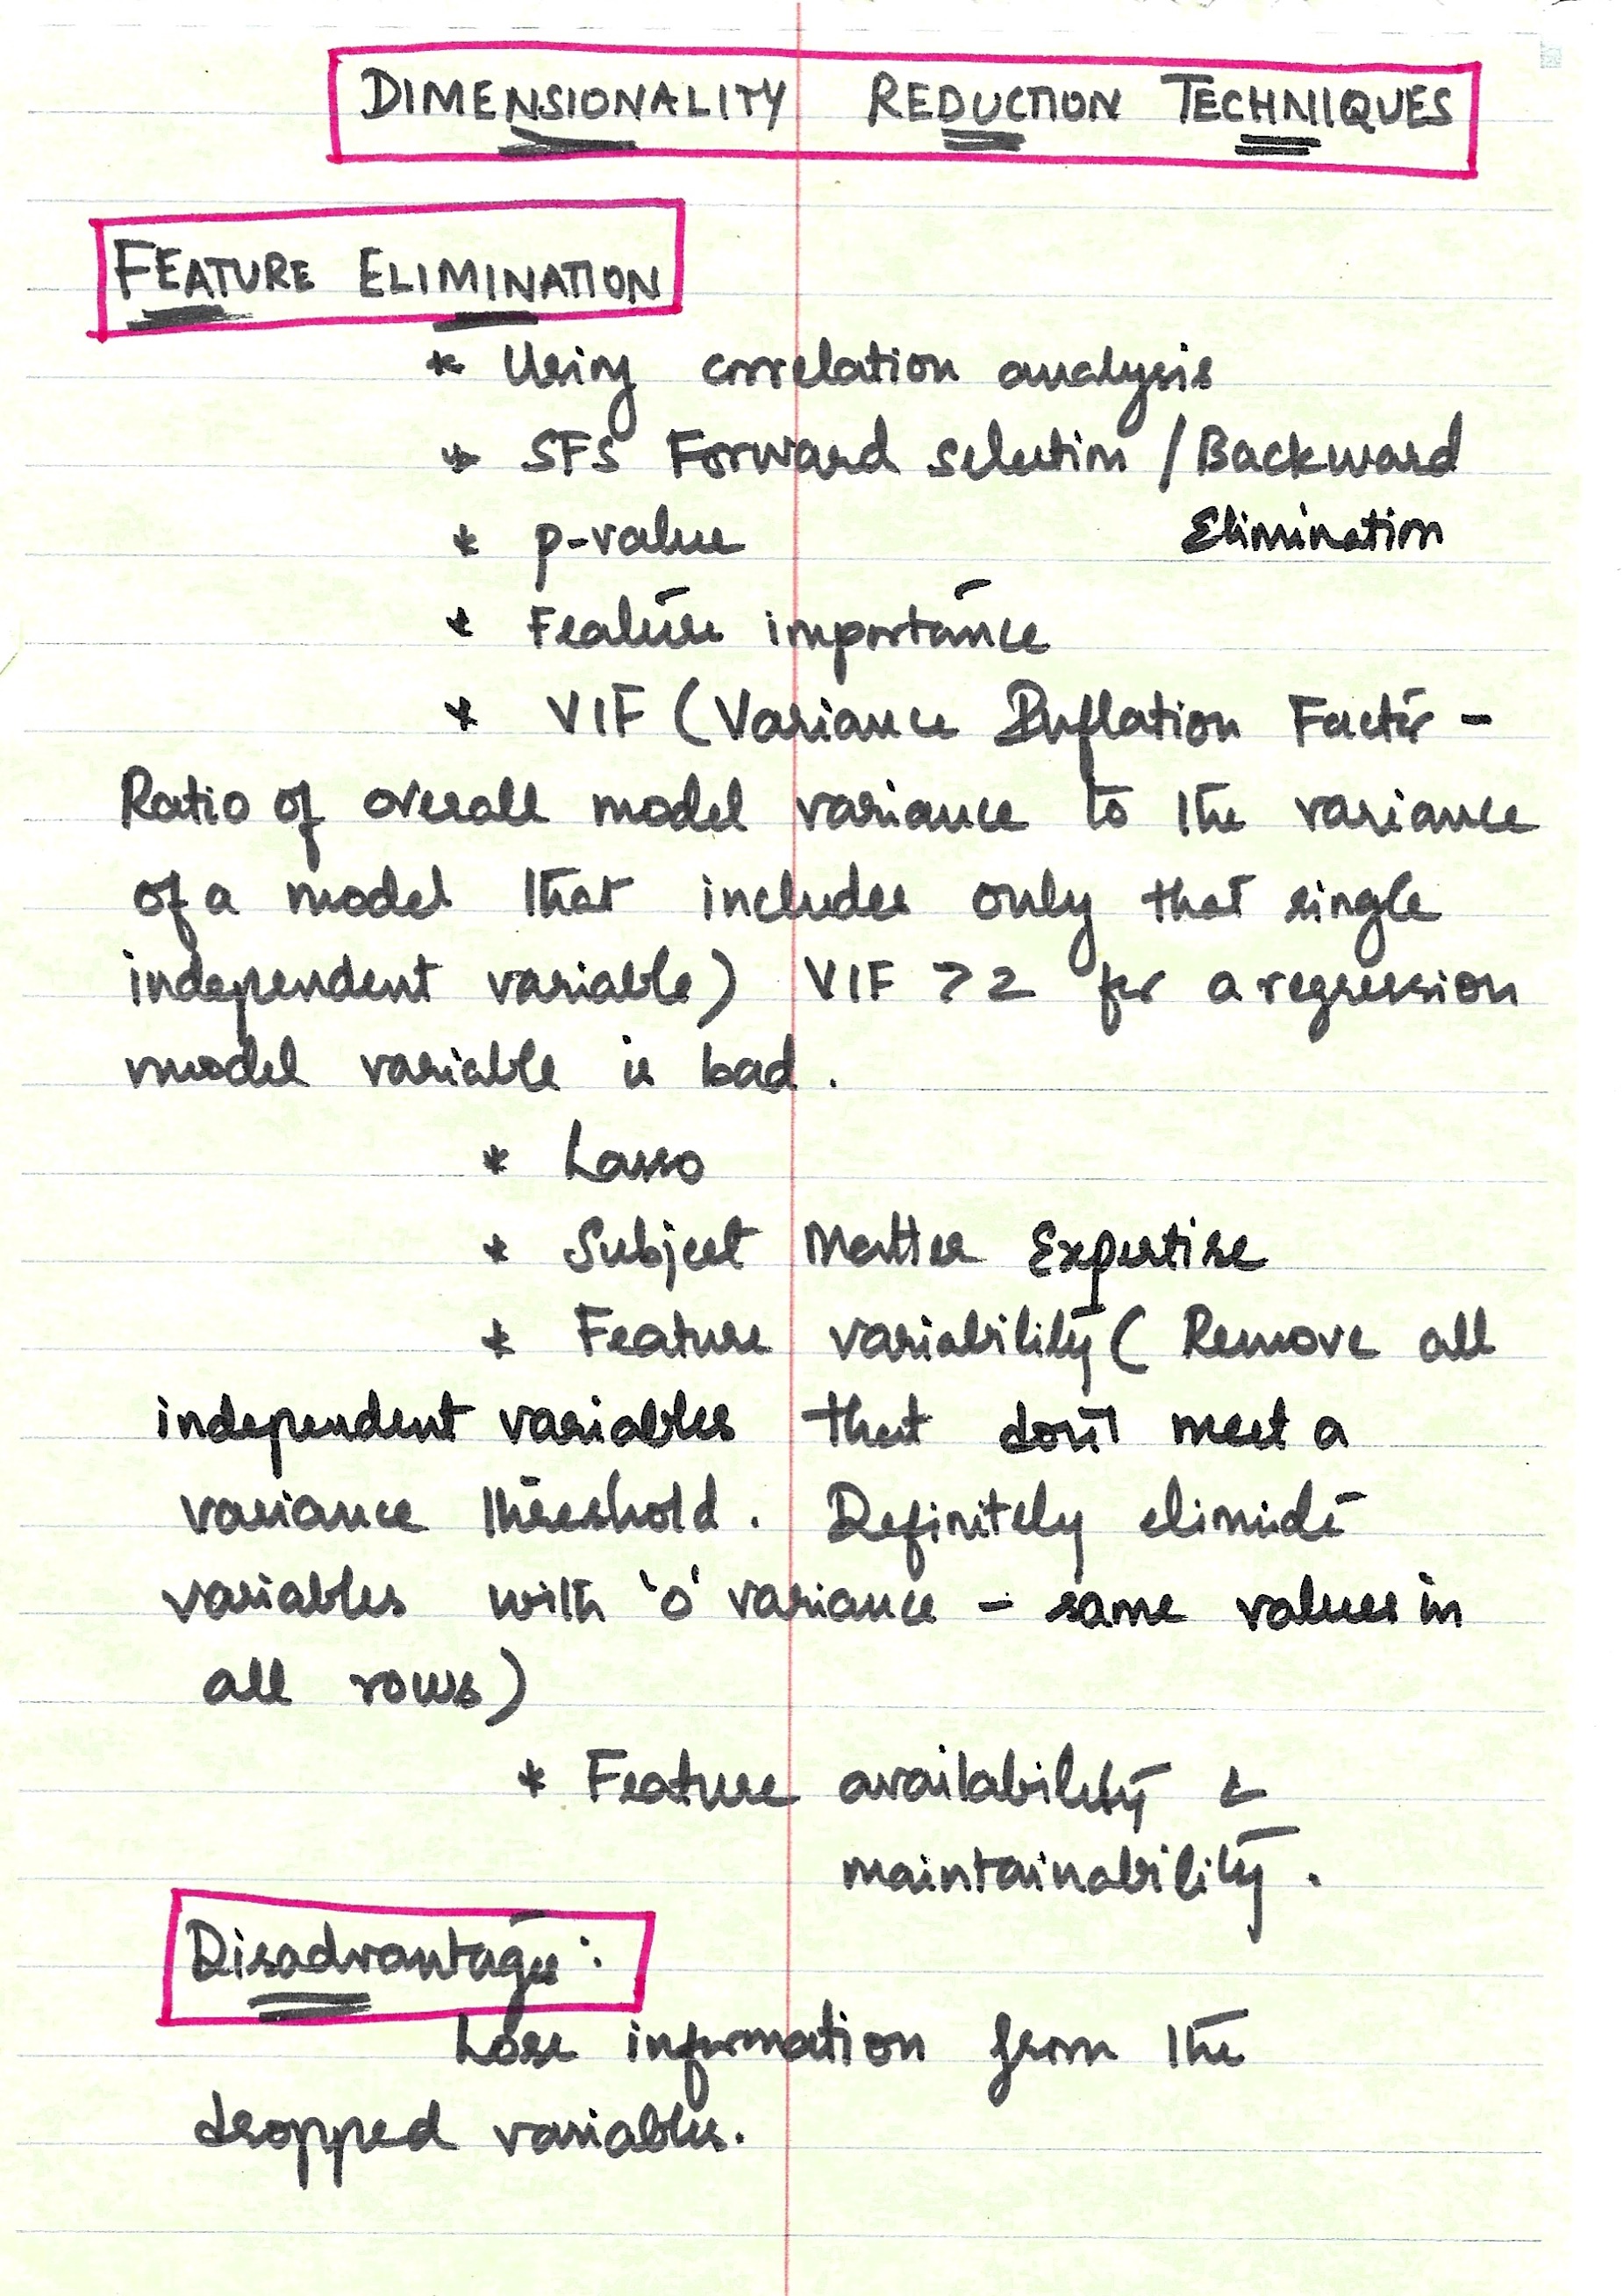 DIMENSIONALITY REDUCTION TECHNIQUES
FEATURE ELIMINATION
* Using correlation analysis
* SFS Forward selection / Backward
Elimination
* p-value
* Feature importance
* VIF (Variance Inflation Factor -
Ratio of overall model variance to the variance
of a model that includes only that single
independent variable) VIF > 2 for a regression
model variable is bad.
* Lasso
* Subject Matter Expertise
* Feature variability ( Remove all
independent variables that don't meet a
variance threshold. Definitely elimidte
variables with '0' variance - same values in
all rows)
* Feature availability &
maintainability.
Disadvantage:
Lose information from the
dropped variables.